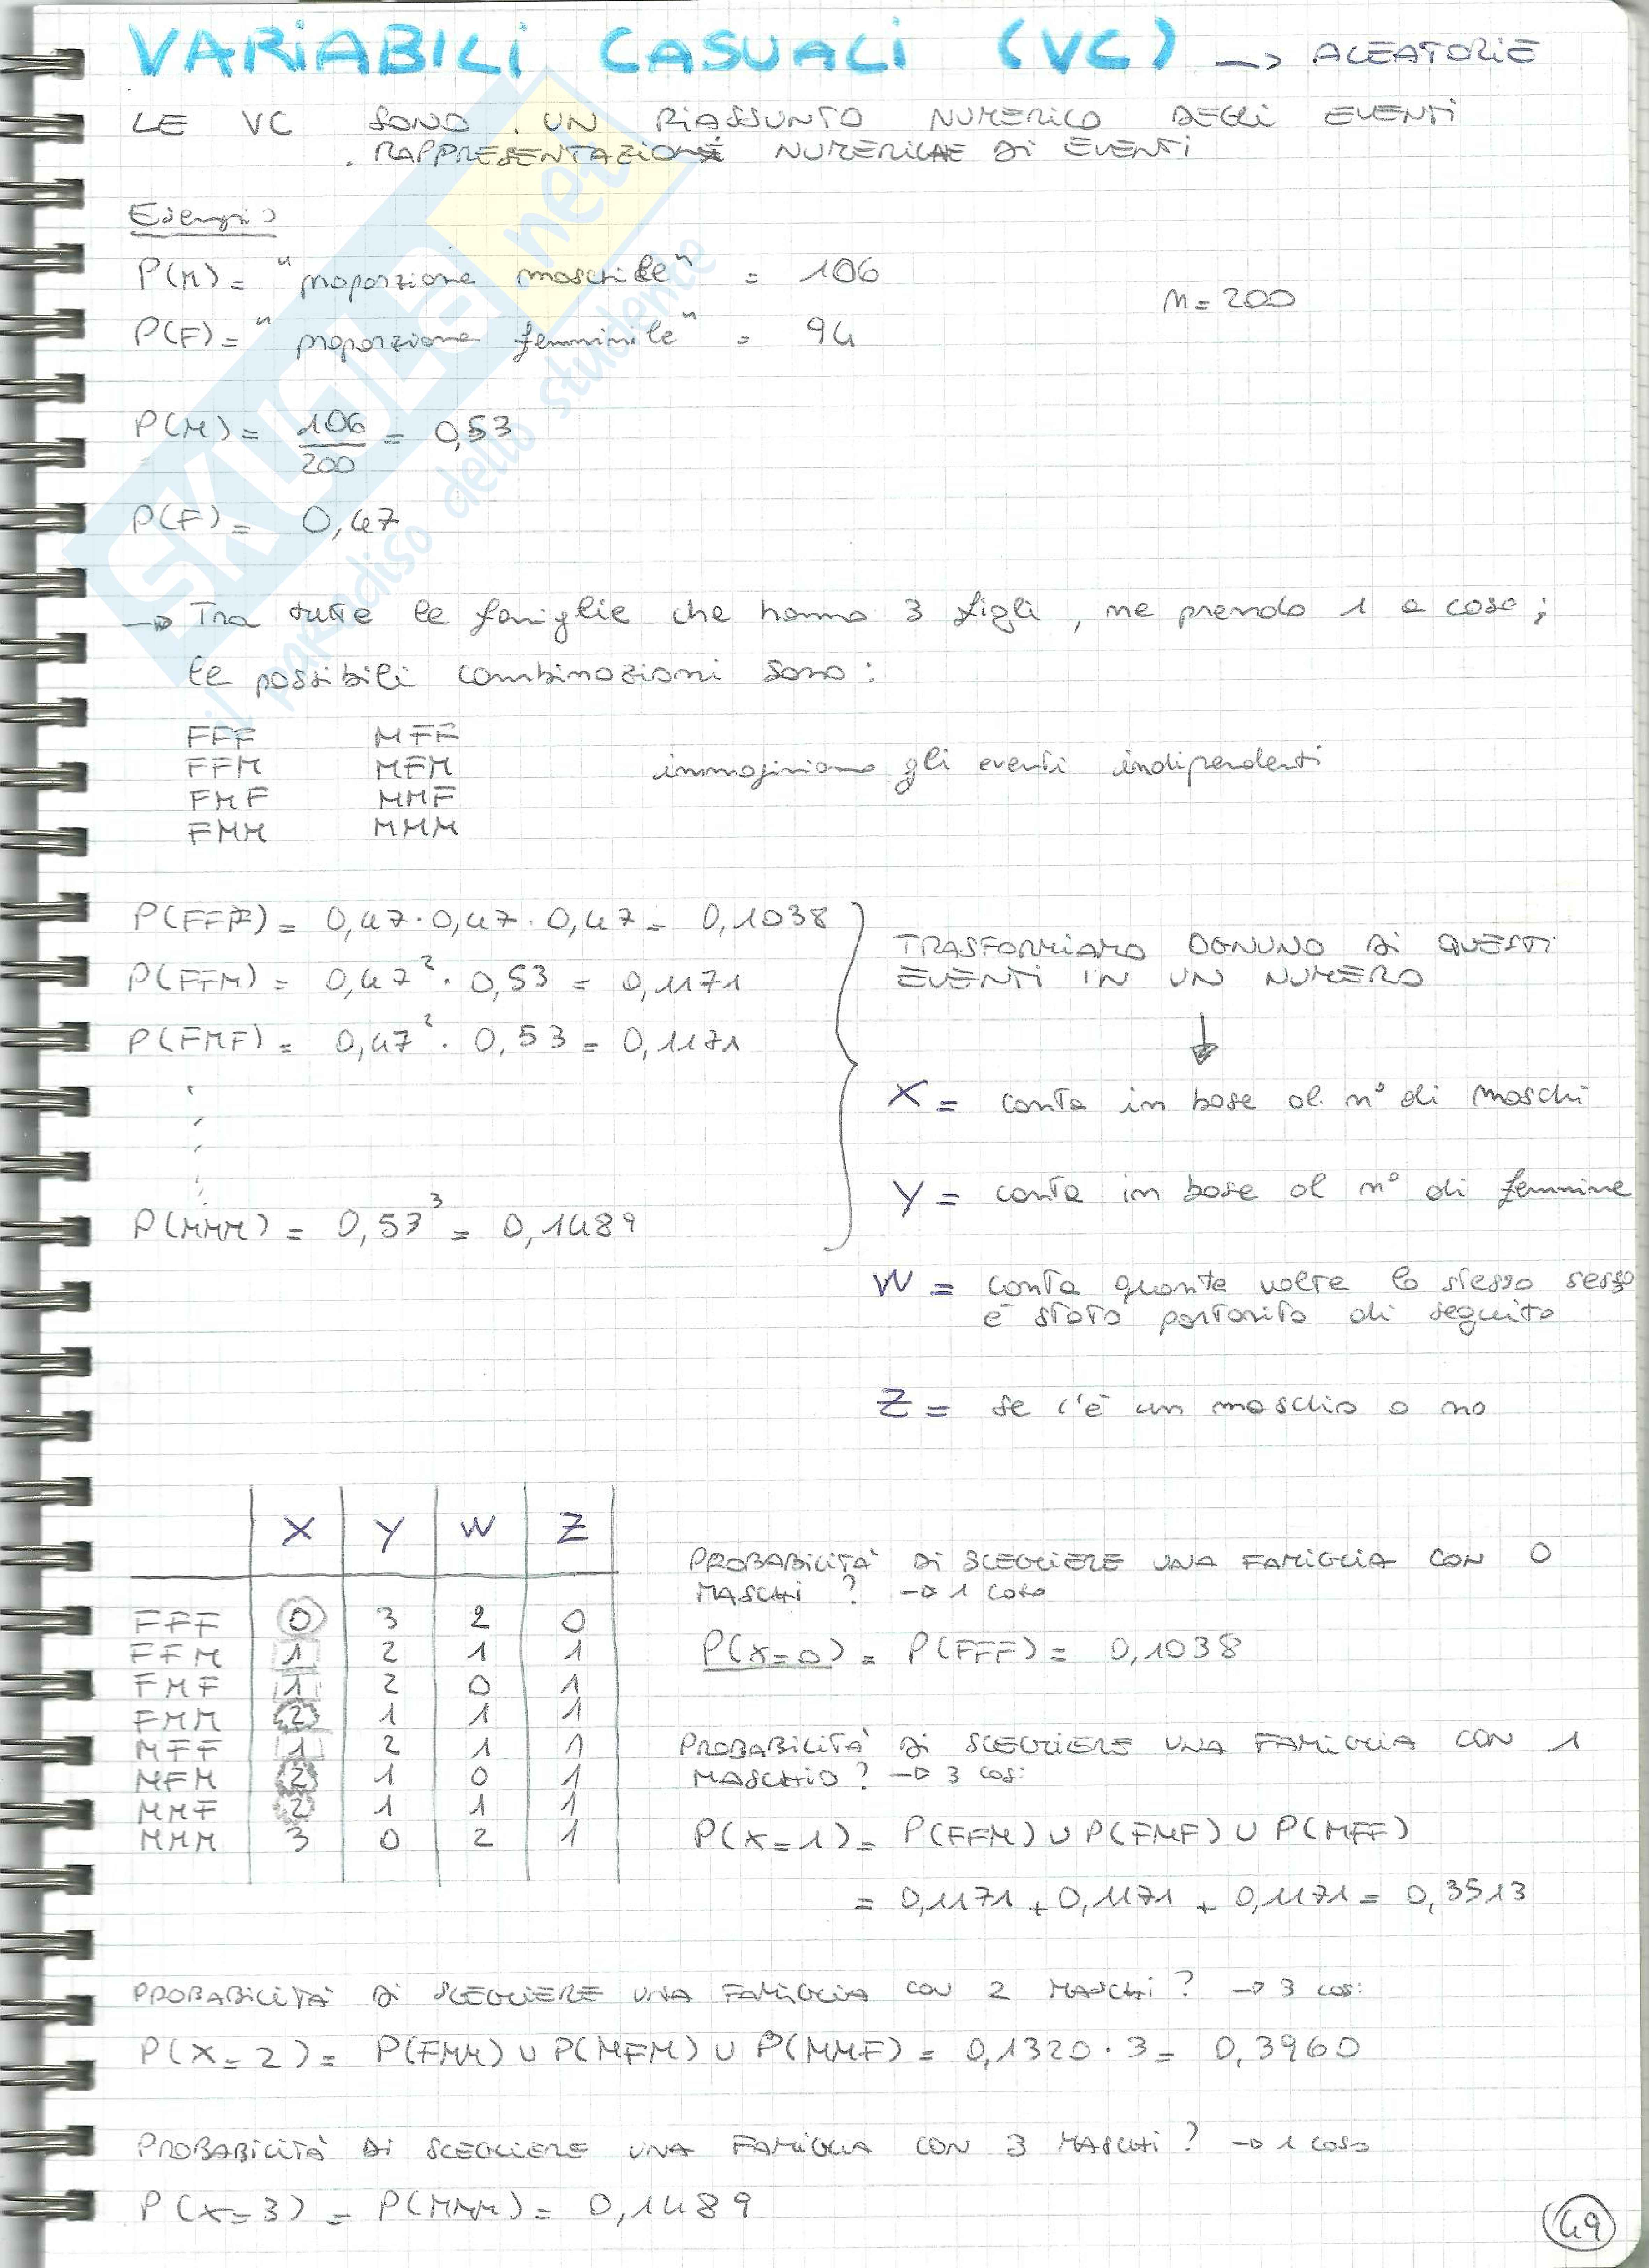 VARIABILI CASUALI (VC) → ALEATORIE
LE VC SONO . UN RIASSUNTO NUMERICO DEGLI EVENTI
. RAPPRESENTAZIONI NUMERICHE DI EVENTI
Esempio
P(M) = "proporzione maschile" = 106
n = 200
P(F) = "proporzione femminile" = 94
P(M) = 106/200 = 0,53
P(F) = 0,47
→ Tra tutte le famiglie che hanno 3 figli, ne prendo 1 a caso;
le possibili combinazioni sono:
FFF MFF
FFM MFM
immaginiamo gli eventi indipendenti
FMF MMF
FMM MMM
P(FFF) = 0,47 · 0,47 · 0,47 = 0,1038
P(FFM) = 0,47² · 0,53 = 0,1171
P(FMF) = 0,47² · 0,53 = 0,1171
P(MMM) = 0,53³ = 0,1489
TRASFORMIAMO OGNUNO DI QUESTI
EVENTI IN UN NUMERO
↓
X = conta in base al n° di maschi
Y = conta in base al n° di femmine
W = conta quante volte lo stesso sesso
è stato partorito di seguito
Z = se c'è un maschio o no
X Y W Z
FFF 0 3 2 0
FFM 1 2 1 1
FMF 1 2 0 1
FMM 2 1 1 1
MFF 1 2 1 1
MFM 2 1 0 1
MMF 2 1 1 1
MMM 3 0 2 1
PROBABILITÀ DI SCEGLIERE UNA FAMIGLIA CON 0
MASCHI? → 1 caso
P(X=0) = P(FFF) = 0,1038
PROBABILITÀ DI SCEGLIERE UNA FAMIGLIA CON 1
MASCHIO? → 3 casi
P(X=1) = P(FFM) ∪ P(FMF) ∪ P(MFF)
= 0,1171 + 0,1171 + 0,1171 = 0,3513
PROBABILITÀ DI SCEGLIERE UNA FAMIGLIA CON 2 MASCHI? → 3 casi
P(X=2) = P(FMM) ∪ P(MFM) ∪ P(MMF) = 0,1320 · 3 = 0,3960
PROBABILITÀ DI SCEGLIERE UNA FAMIGLIA CON 3 MASCHI? → 1 caso
P(X=3) = P(MMM) = 0,1489
49
SKUOLA.net
il paradiso dello studente